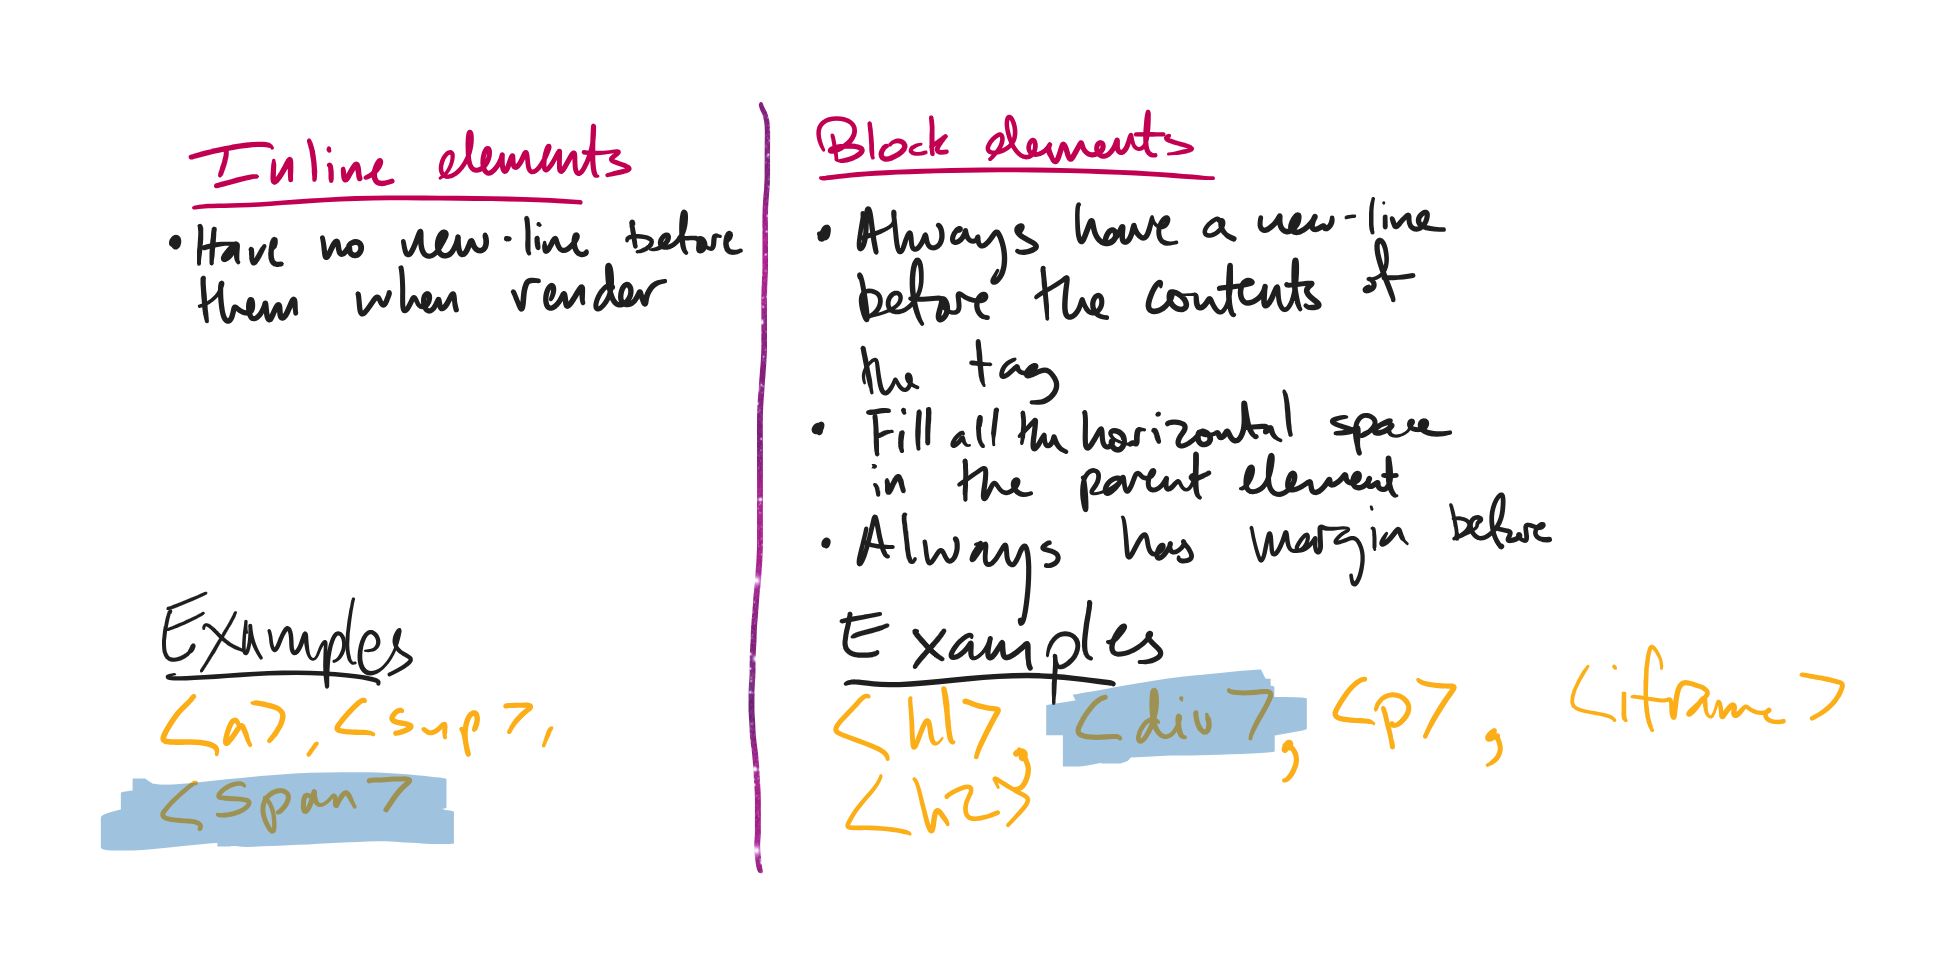 Inline elements
• Have no new-line before
them when render
Examples
<a>, <sup>,
<span>
Block elements
• Always have a new-line
before the contents of
the tag
• Fill all the horizontal space
in the parent element
• Always has margin before
Examples
<h1>, <div>, <p>, <iframe>
<h2>